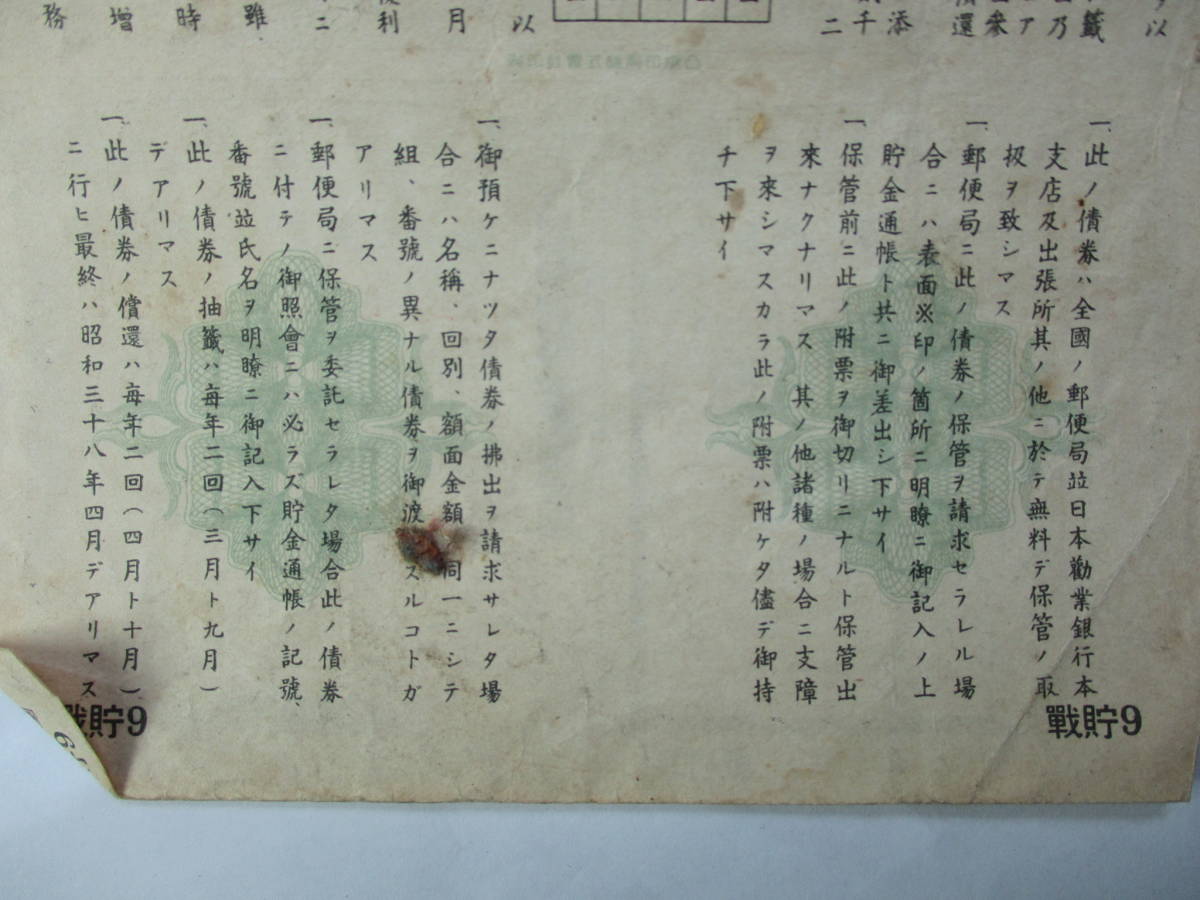 ヲ以
籤
乃
ア
參
還
添
千
二
以
月
複利
二
雖
時
增
務
一、此ノ債券ハ全國ノ郵便局竝日本勸業銀行本
支店及出張所其ノ他ニ於テ無料デ保管ノ取
扱ヲ致シマス
一、郵便局ニ此ノ債券ノ保管ヲ請求セラレル場
合ニハ表面※印ノ箇所ニ明瞭ニ御記入ノ上
貯金通帳ト共ニ御差出シ下サイ
一、保管前ニ此ノ附票ヲ御切リニナルト保管出
來ナクナリマス 其ノ他諸種ノ場合ニ支障
ヲ來シマスカラ此ノ附票ハ附ケタ儘デ御持
チ下サイ
一、御預ケニナツタ債券ノ拂出ヲ請求サレタ場
合ニハ名稱、回別、額面金額 同一ニシテ
組、番號ノ異ナル債券ヲ御渡 スルコトガ
アリマス
一、郵便局ニ保管ヲ委託セラレタ場合此ノ債券
ニ付テノ御照會ニハ必ラズ貯金通帳ノ記號、
番號竝氏名ヲ明瞭ニ御記入下サイ
一、此ノ債券ノ抽籤ハ每年二回(三月ト九月)
デアリマス
一、此ノ債券ノ償還ハ每年二回(四月ト十月)
ニ行ヒ最終ハ昭和三十八年四月デアリマス
戰貯9
戰貯9